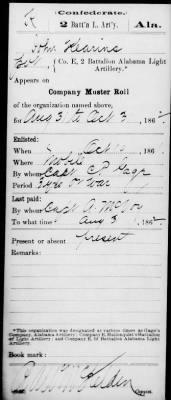 Confederate.
2 Batt'n L. Art'y. Ala.
John
Co. E, 2 Battalion Alabama Light
Artillery.*
Appears on
Company Muster Roll
of the organization named above,
for Aug 31 to Oct 31, 186
Enlisted:
When Oct 186
Where Mobile
By whom Capt. C. P. Gage
Period 3 yrs or war
Last paid:
By whom Capt. A.
To what time Aug 31, 186
Present or absent present
Remarks:
*This organization was designated at various times as Gage's
Company, Alabama Artillery; Company E, Hallonquist's Battalion
of Light Artillery; and Company E, 2d Battalion Alabama Light
Artillery.
Book mark:
Copyist.